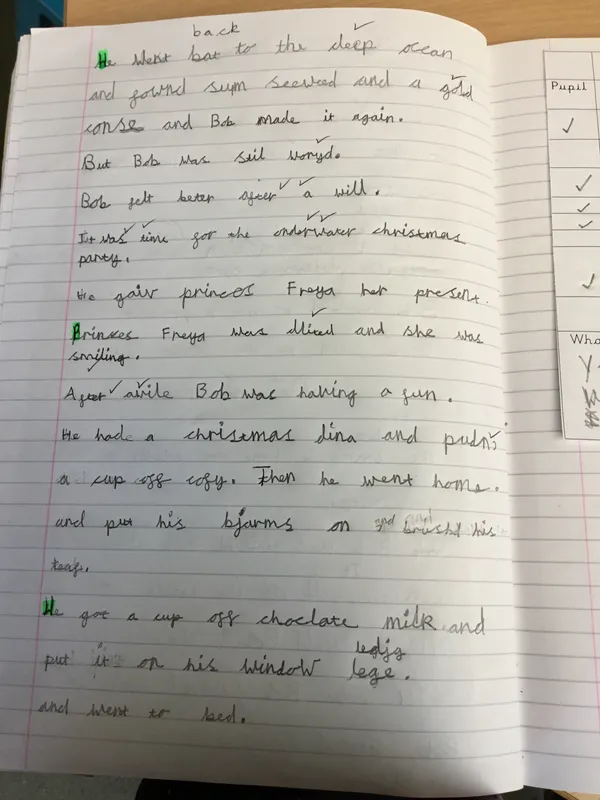 back
He went bat to the deep ocean
and fownd sum seeweed and a gold
conse and Bob made it again.
But Bob was stil woryd.
Bob felt beter after a will.
It was time for the onderwater christmas
party.
He gaiv princes Freya her present.
Princes Freya was dlited and she was
smiling.
After awile Bob was haking a fun.
He hade a christmas dina and pudn
a cup off cofy. Then he went home.
and put his bjarms on and brushd his
teaf.
He got a cup off choclate milk and
ledjg
put it on his window lege.
and went to bed.
Pupil